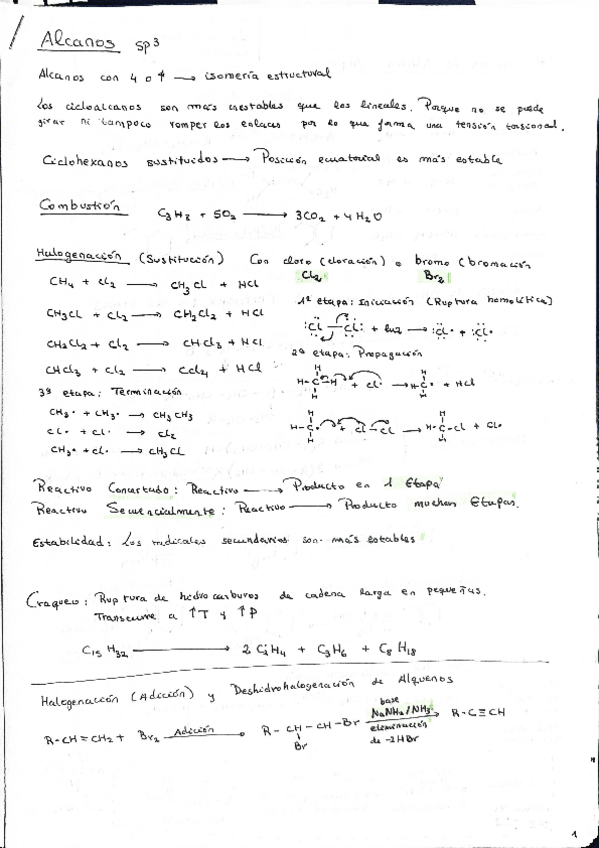 Alcanos sp3
Alcanos con 4 o ↑ → isomería estructural
Los cicloalcanos son más inestables que los lineales. Porque no se puede
girar ni tampoco romper los enlaces por lo que forma una tensión torsional.
Ciclohexanos sustituidos → Posición ecuatorial es más estable
Combustión C3H8 + 5O2 → 3CO2 + 4H2O
Halogenación (Sustitución) Con cloro (cloración) o bromo (bromación
Cl2 Br2
CH4 + Cl2 → CH3Cl + HCl
CH3Cl + Cl2 → CH2Cl2 + HCl
CH2Cl2 + Cl2 → CHCl3 + HCl
CHCl3 + Cl2 → CCl4 + HCl
3ª etapa: Terminación
CH3• + CH3• → CH3CH3
Cl• + Cl• → Cl2
CH3• + Cl• → CH3Cl
1ª etapa: Iniciación (Ruptura homolítica)
:Cl — Cl: + luz → :Cl• + :Cl•
2ª etapa: Propagación
H
H-C-H + Cl• → H-C• + HCl
H
H
H-C• + Cl-Cl → H-C-Cl + Cl•
H
Reactivo Concertado: Reactivo → Producto en 1 Etapa
Reactivo Secuencialmente: Reactivo → Producto muchas Etapas.
Estabilidad: Los radicales secundarios son más estables
Craqueo: Ruptura de hidrocarburos de cadena larga en pequeñas.
Transcurre a ↑T y ↑P
C15H32 → 2 C2H4 + C3H6 + C8H18
Halogenación (Adición) y Deshidrohalogenación de Alquenos
base
R-CH=CH2 + Br2 Adición → R-CH-CH-Br NaNH2/NH3 → R-C≡CH
Br
eliminación
de -2HBr
1